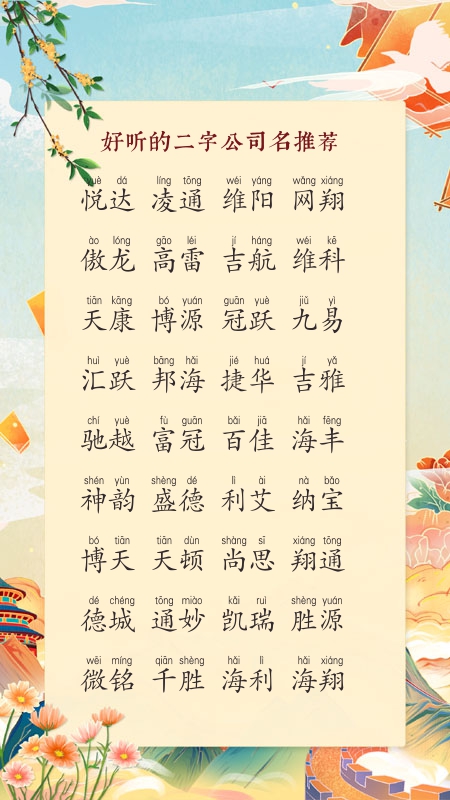 好听的二字公司名推荐
yuè dá líng tōng wéi yáng wǎng xiáng
悦达 凌通 维阳 网翔
ào lóng gāo léi jí háng wéi kē
傲龙 高雷 吉航 维科
tiān kāng bó yuán guān yuè jiǔ yì
天康 博源 冠跃 九易
huì yuè bāng hǎi jié huá jí yǎ
汇跃 邦海 捷华 吉雅
chí yuè fù guān bǎi jiā hǎi fēng
驰越 富冠 百佳 海丰
shén yùn shèng dé lì ài nà bǎo
神韵 盛德 利艾 纳宝
bó tiān tiān dùn shàng sī xiáng tōng
博天 天顿 尚思 翔通
dé chéng tōng miào kǎi ruì shèng yuán
德城 通妙 凯瑞 胜源
wēi míng qiān shèng hǎi lì hǎi xiáng
微铭 千胜 海利 海翔